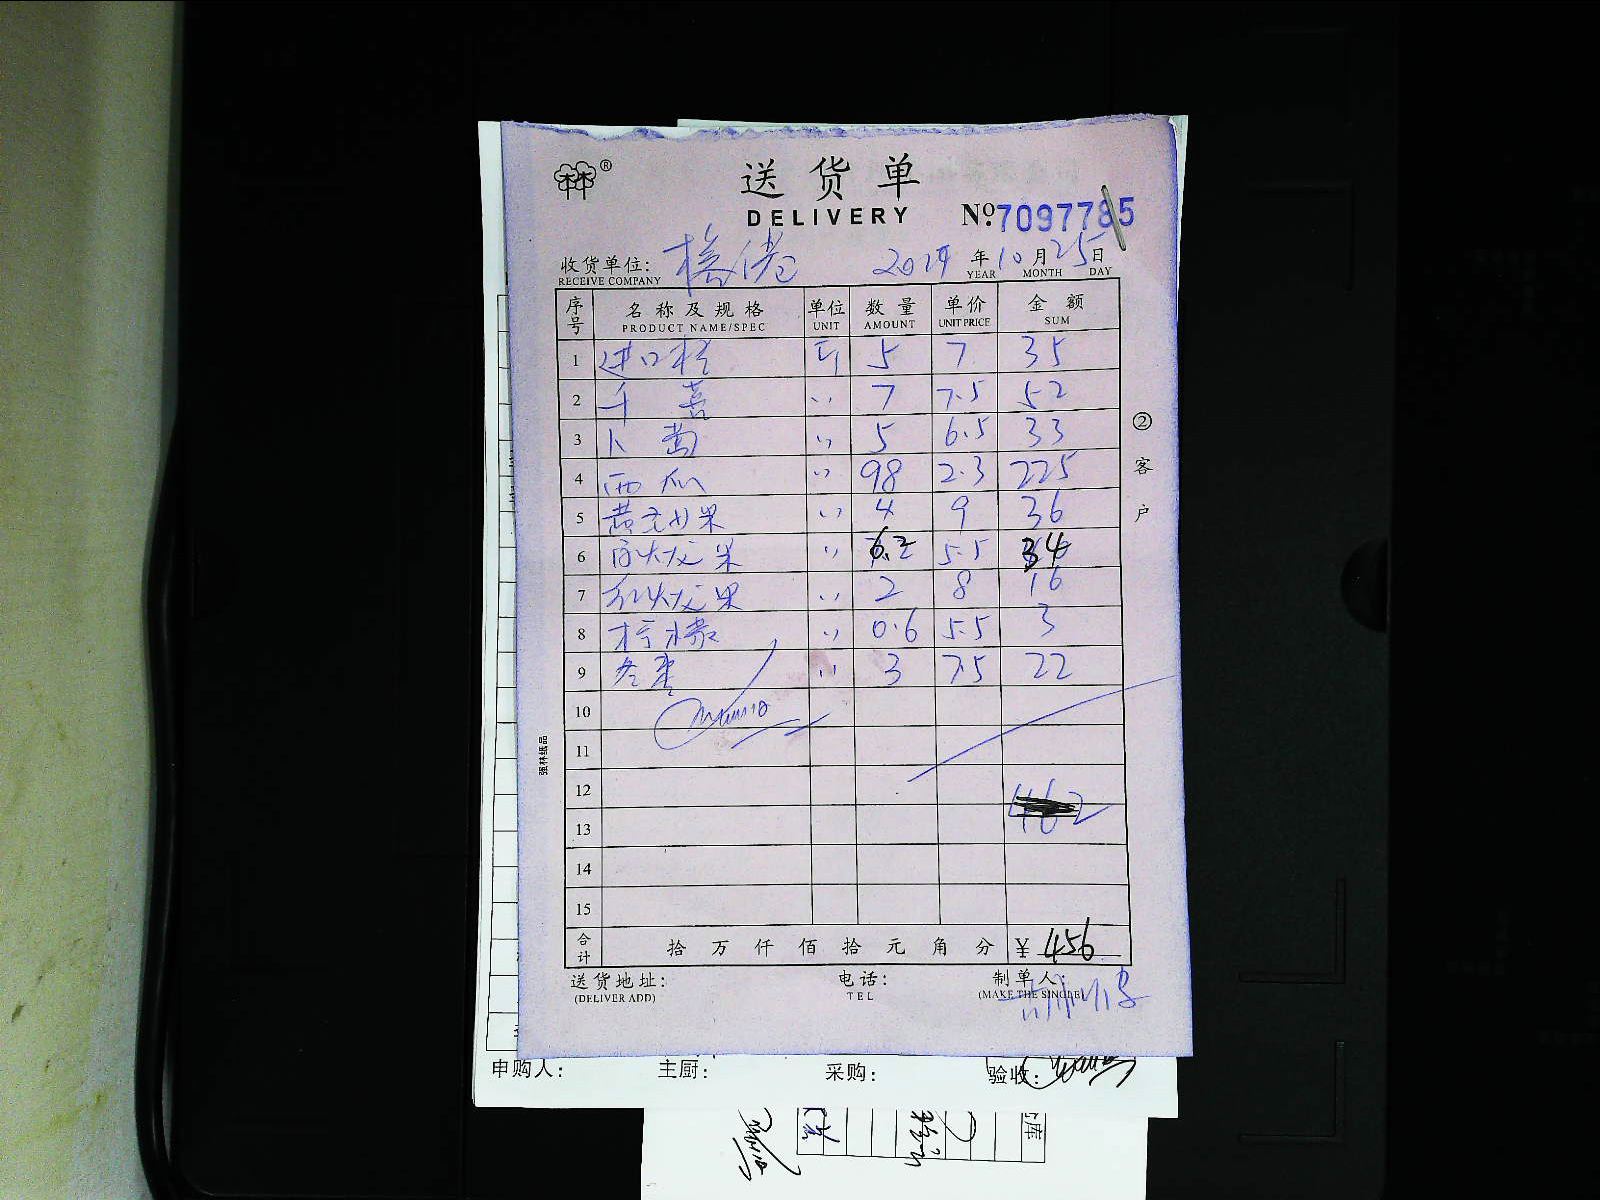 林林®
送货单
DELIVERY №7097785
收货单位: 2019年10月25日
RECEIVE COMPANY YEAR MONTH DAY
序号 名称及规格 单位 数量 单价 金额
PRODUCT NAME/SPEC UNIT AMOUNT UNIT PRICE SUM
1 进口橙 斤 5 7 35
2 千喜 〃 7 7.5 52
3 卜萄 〃 5 6.5 33
4 西瓜 〃 98 2.3 225
5 黄金力果 〃 4 9 36
6 白火龙果 〃 6.2 5.5 34
7 红火龙果 〃 2 8 16
8 柠檬 〃 0.6 5.5 3
9 冬枣 〃 3 7.5 22
10
11
12
462
13
14
15
合计 拾万仟佰拾元角分 ¥ 456
送货地址: 电话: 制单人:
(DELIVER ADD) TEL (MAKE THE SINGLE)
②客户
强林纸品
申购人: 主厨: 采购: 验收:
库